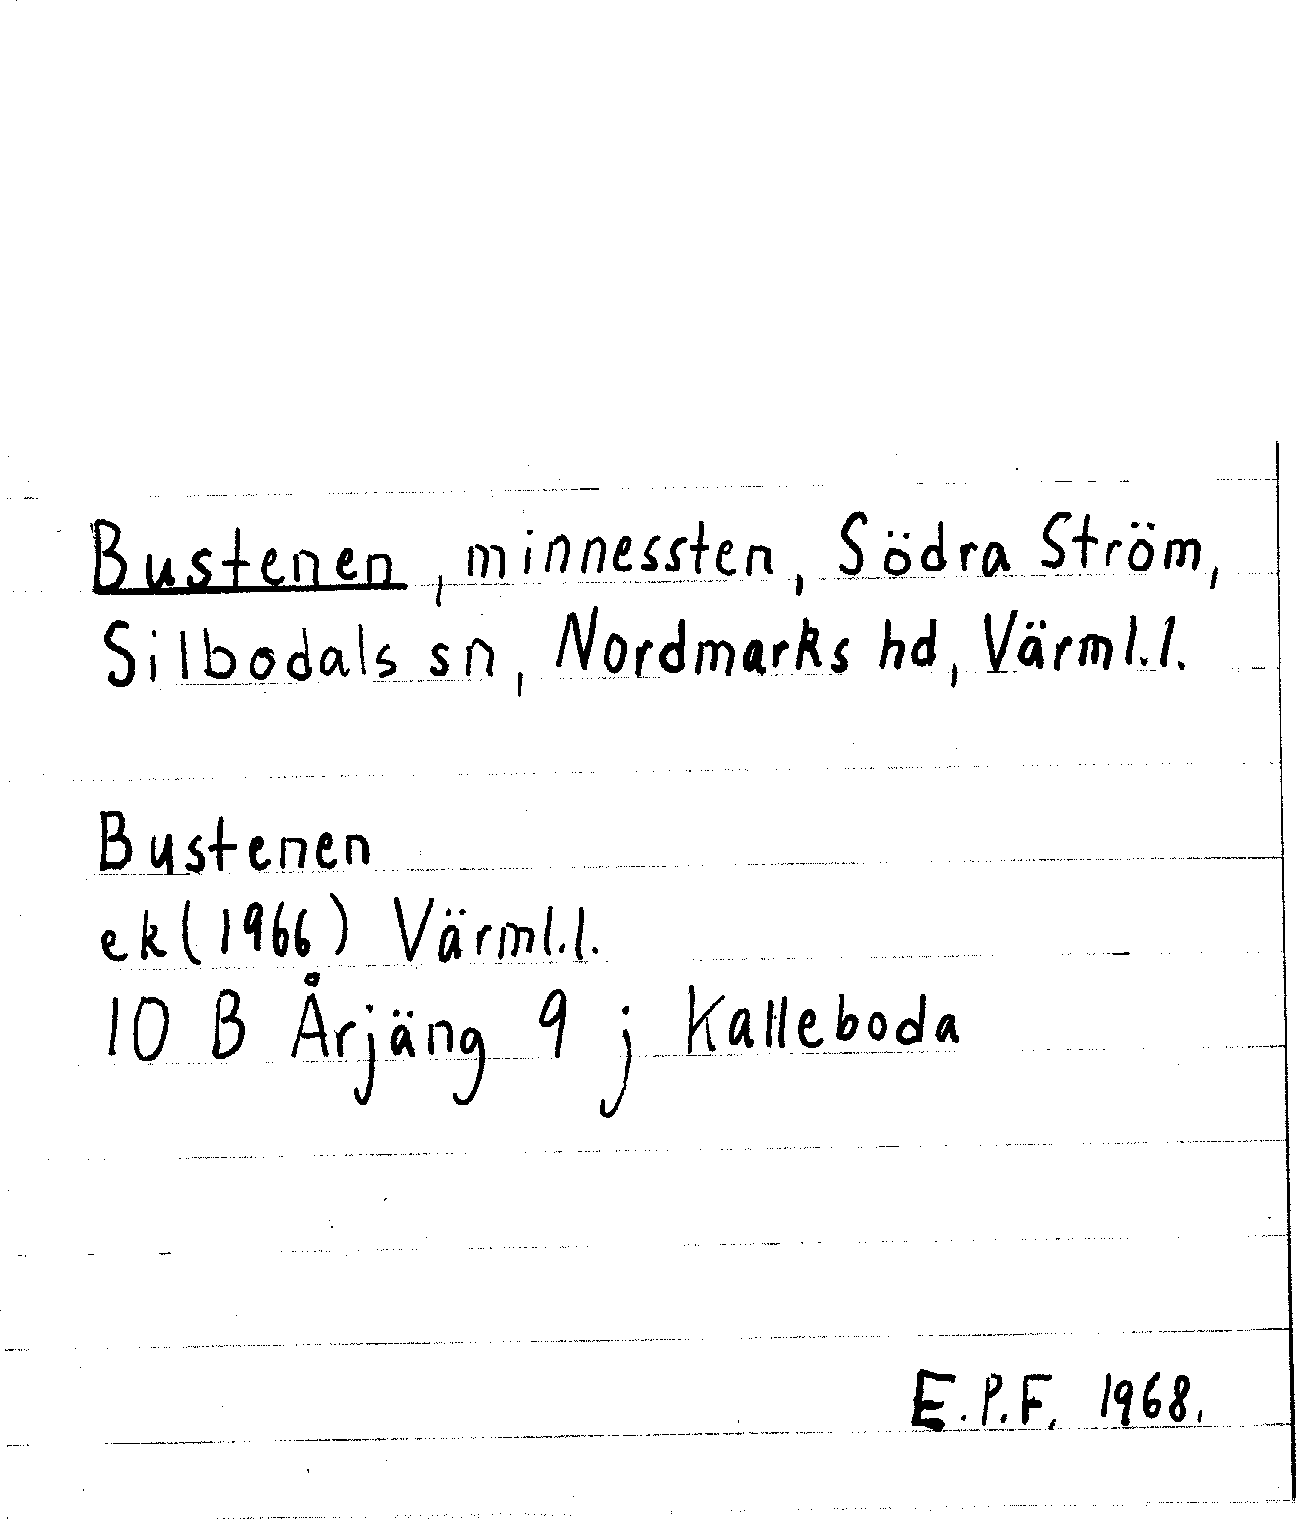 Bustenen, minnessten, Södra Ström,
Silbodals sn, Nordmarks hd, Värml.l.
Bustenen
ek (1966) Värml.l.
10 B Årjäng 9 j Kalleboda
E.P.F. 1968.